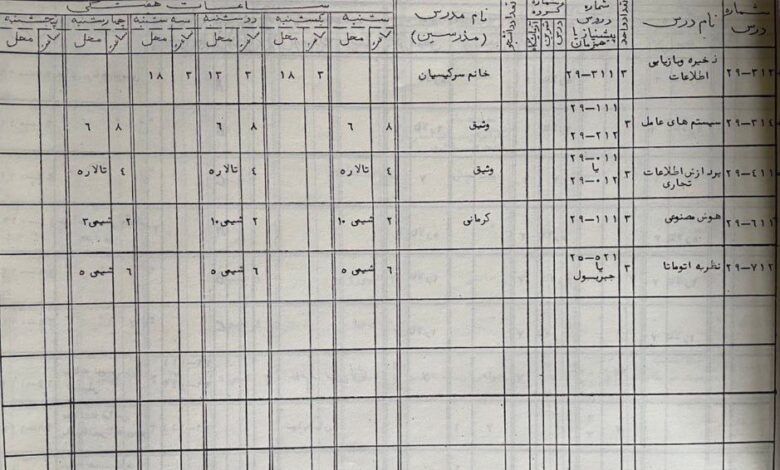 شماره درس
نام درس
تعداد واحد
شماره دروس پیشنیاز یا همزمان
نام مدرس (مدرسین)
ساعات هفتگی
شنبه یکشنبه دوشنبه سه شنبه چهارشنبه پنجشنبه
محل محل محل محل محل محل
۲۹-۳۱۲ ذخیره و بازیابی اطلاعات ۳ ۲۹-۳۱۱ خانم سرکیسیان ۳ ۱۸ ۳ ۱۳ ۳ ۱۸
۲۹-۳۱۴ سیستم های عامل ۳ ۲۹-۱۱۱ ۲۹-۲۱۲ وثیق ۸ ۶ ۸ ۶ ۸ ۶
۲۹-۴۱۱ پردازش اطلاعات تجاری ۳ ۲۹-۰۱۱ یا ۲۹-۰۱۲ وثیق ۴ تالار۵ ۴ تالار۵ ۴ تالار۵
۲۹-۶۱۱ هوش مصنوعی ۳ ۲۹-۱۱۱ کرمانی ۲ شیمی ۱۰ ۲ شیمی ۱۰ ۲ شیمی ۳
۲۹-۷۱۲ نظریه اتوماتا ۳ ۲۵-۵۲۱ یا جبریسول ۶ شیمی ۵ ۶ شیمی ۵ ۶ شیمی ۵